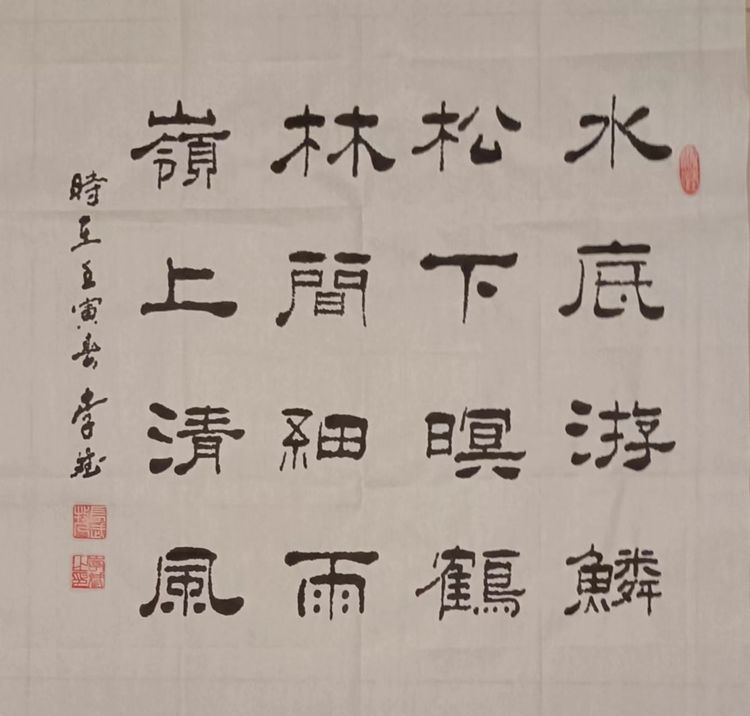 水底游鱗
松下暝鶴
林間細雨
嶺上清風
時在壬寅春